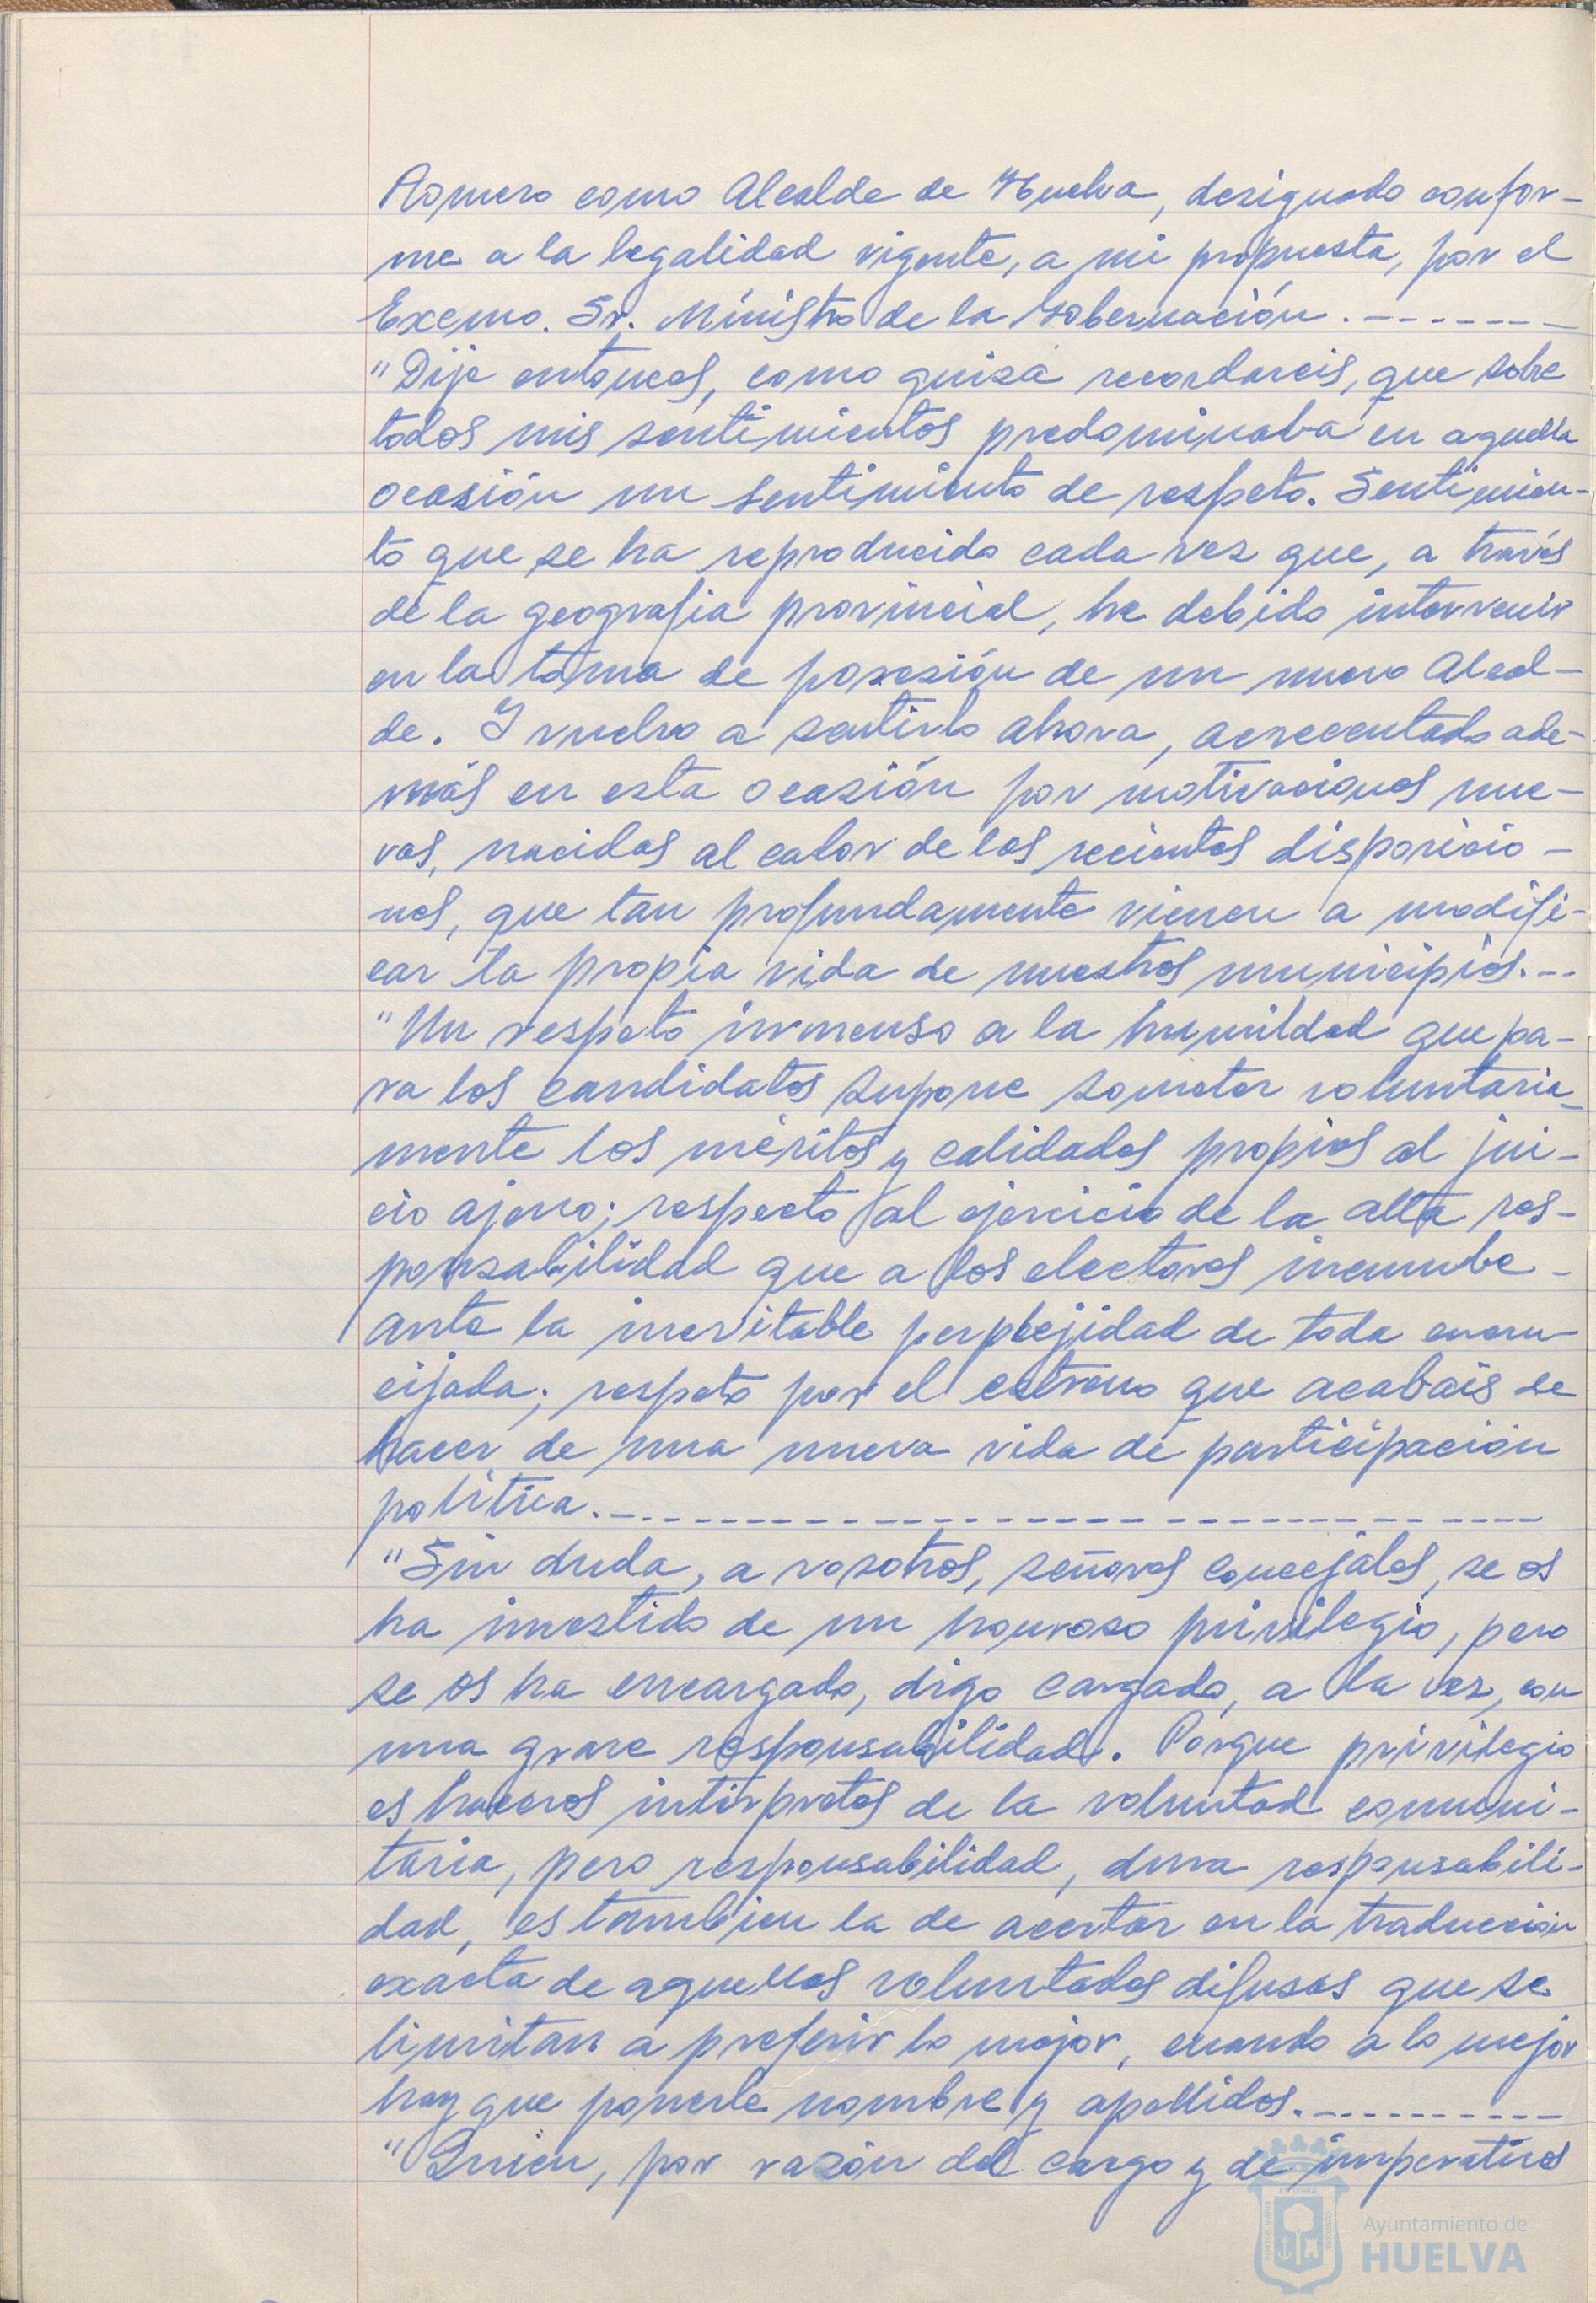 Romero como Alcalde de Huelva, designado confor-
me a la legalidad vigente, a mi propuesta, por el
Excmo. Sr. Ministro de la Gobernación.-------
"Dije entonces, como quizá recordareis, que sobre
todos mis sentimientos predominaba en aquella
ocasión un sentimiento de respeto. Sentimien-
to que se ha reproducido cada vez que, a través
de la geografia provincial, he debido intervenir
en la toma de posesión de un nuevo Alcal-
de. Y vuelvo a sentirlo ahora, acrecentado ade-
más en esta ocasión por motivaciones nue-
vas, nacidas al calor de las recientes disposicio-
nes, que tan profundamente vienen a modifi-
car la propia vida de nuestros municipios.--
"Un respeto inmenso a la humildad que pa-
ra los candidatos supone someter voluntaria-
mente los méritos y calidades propios al jui-
cio ajeno; respecto al ejercicio de la alta res-
ponsabilidad que a los electores incumbe-
ante la inevitable perplejidad de toda encru-
cijada; respeto por el estreno que acabais de
hacer de una nueva vida de participación
politica.--------------------------
"Sin duda, a vosotros, señores concejales, se os
ha investido de un honroso privilegio, pero
se os ha encargado, digo cargado, a la vez, con
una grave responsabilidad. Porque privilegio
es haceros intérpretes de la voluntad comuni-
taria, pero responsabilidad, dura responsabili-
dad, es tambien la de acertar en la traducción
exacta de aquellas voluntades difusas que se
limitan a preferir lo mejor, cuando a lo mejor
hay que ponerle nombre y apellidos.----------
"Quien, por razón del cargo y de imperativos
Ayuntamiento de
HUELVA